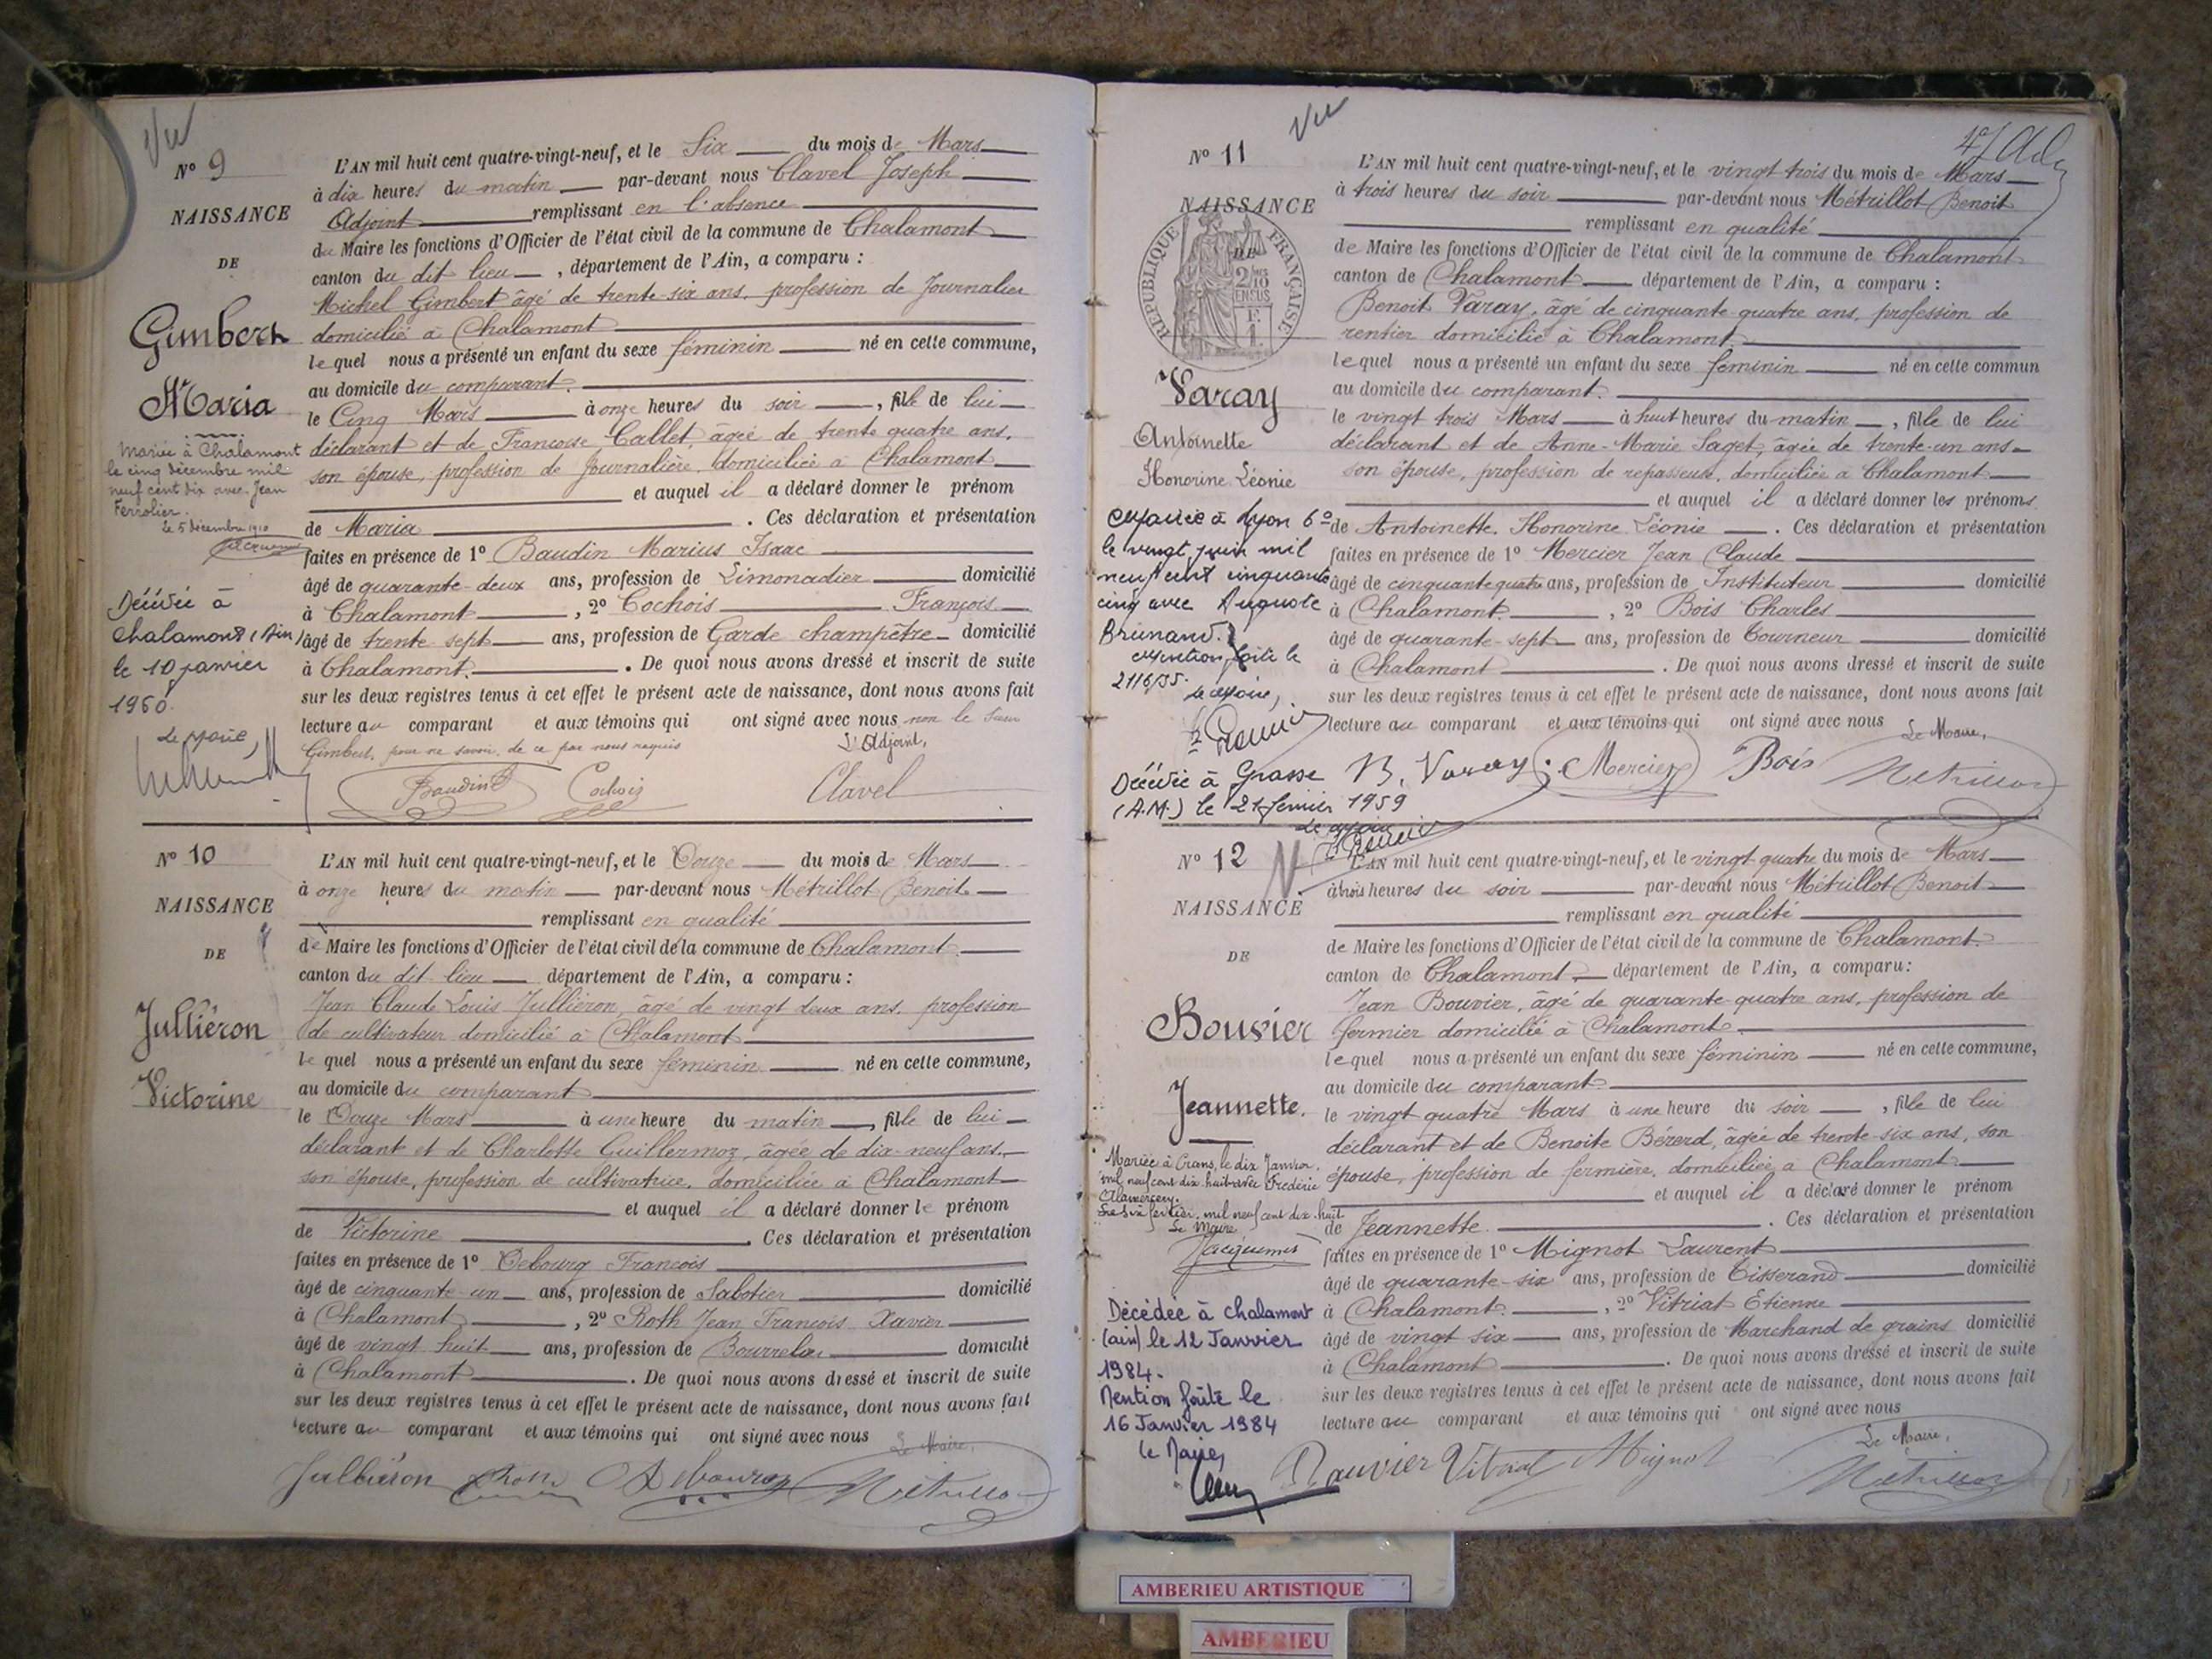 Vu
Nº 9
NAISSANCE
DE
Gimbert
Maria
Mariée à Chalamont
le cinq décembre mil
neuf cent dix avec Jean
Ferrolier.
Le 5 décembre 1910
Décédée à
Chalamont (Ain)
le 10 janvier
1960.
Le Maire,
L'AN mil huit cent quatre-vingt-neuf, et le Six du mois de Mars
à dix heures du matin par-devant nous Clavel Joseph
Adjoint remplissant en l'absence
du Maire les fonctions d'Officier de l'état civil de la commune de Chalamont
canton du dit lieu, département de l'Ain, a comparu :
Michel Gimbert âgé de trente-six ans, profession de Journalier
domicilié à Chalamont
lequel nous a présenté un enfant du sexe féminin né en cette commune,
au domicile du comparant.
le Cinq Mars à onze heures du soir, fille de lui
déclarant et de Francoise Callet, âgée de trente quatre ans,
son épouse, profession de Journalière, domiciliée à Chalamont
et auquel il a déclaré donner le prénom
de Maria. Ces déclaration et présentation
faites en présence de 1º Baudin Marius Isaac
âgé de quarante-deux ans, profession de Limonadier domicilié
à Chalamont, 2º Cochois François
âgé de trente-sept ans, profession de Garde champêtre domicilié
à Chalamont. De quoi nous avons dressé et inscrit de suite
sur les deux registres tenus à cet effet le présent acte de naissance, dont nous avons fait
lecture au comparant et aux témoins qui ont signé avec nous non le sieur
Gimbert, pour ne savoir, de ce par nous requis
L'Adjoint,
Baudin Cochois Clavel
Nº 10
NAISSANCE
DE
Julliéron
Victorine
L'AN mil huit cent quatre-vingt-neuf, et le Douze du mois de Mars
à onze heures du matin par-devant nous Métrillot Benoit
remplissant en qualité
de Maire les fonctions d'Officier de l'état civil de la commune de Chalamont
canton du dit lieu département de l'Ain, a comparu :
Jean Claude Louis Julliéron, âgé de vingt deux ans, profession
de cultivateur domicilié à Chalamont
lequel nous a présenté un enfant du sexe féminin né en cette commune,
au domicile du comparant
le Douze Mars à une heure du matin, fille de lui
déclarant et de Charlotte Guillermoz, âgée de dix-neuf ans,
son épouse, profession de cultivatrice, domiciliée à Chalamont
et auquel il a déclaré donner le prénom
de Victorine. Ces déclaration et présentation
faites en présence de 1º Debourg François
âgé de cinquante-un ans, profession de Sabotier domicilié
à Chalamont, 2º Roth Jean François Xavier
âgé de vingt huit ans, profession de Bourrelier domicilié
à Chalamont. De quoi nous avons dressé et inscrit de suite
sur les deux registres tenus à cet effet le présent acte de naissance, dont nous avons fait
lecture au comparant et aux témoins qui ont signé avec nous Le Maire,
Julliéron Roth Debourg Métrillot
Vu
Nº 11
NAISSANCE
DE
RÉPUBLIQUE FRANÇAISE
2/10
EN SUS
Varay
Antoinette
Honorine Léonie
Mariée à Lyon 6º
le vingt juin mil
neuf cent cinquante
cinq avec Auguste
Brunand.
Mention faite le
21/6/55.
Le Maire,
Décédée à Grasse
(A.M.) le 21 février 1959
Le Maire
L'AN mil huit cent quatre-vingt-neuf, et le vingt trois du mois de Mars
à trois heures du soir par-devant nous Métrillot Benoit
remplissant en qualité
de Maire les fonctions d'Officier de l'état civil de la commune de Chalamont
canton de Chalamont département de l'Ain, a comparu :
Benoit Varay, âgé de cinquante-quatre ans, profession de
rentier domicilié à Chalamont
lequel nous a présenté un enfant du sexe féminin né en cette commun
au domicile du comparant.
le vingt trois Mars à huit heures du matin, fille de lui
déclarant et de Anne-Marie Saget, âgée de trente-un ans
son épouse, profession de repasseuse, domiciliée à Chalamont
et auquel il a déclaré donner les prénoms
de Antoinette, Honorine Léonie. Ces déclaration et présentation
faites en présence de 1º Mercier Jean Claude
âgé de cinquante quatre ans, profession de Instituteur domicilié
à Chalamont, 2º Bois Charles
âgé de quarante-sept ans, profession de Tourneur domicilié
à Chalamont. De quoi nous avons dressé et inscrit de suite
sur les deux registres tenus à cet effet le présent acte de naissance, dont nous avons fait
lecture au comparant et aux témoins qui ont signé avec nous Le Maire,
B. Varay Mercier Bois Métrillot
Nº 12
NAISSANCE
DE
Bouvier
Jeannette.
Mariée à Crans, le dix Janvier,
mil neuf cent dix huit avec Frédéric
Alamercery.
Le six février, mil neuf cent dix-huit
Le Maire
Jacquemet
Décédée à Chalamont
(ain) le 12 Janvier
1984.
Mention faite le
16 Janvier 1984
le Maire,
L'AN mil huit cent quatre-vingt-neuf, et le vingt quatre du mois de Mars
à trois heures du soir par-devant nous Métrillot Benoit
remplissant en qualité
de Maire les fonctions d'Officier de l'état civil de la commune de Chalamont
canton de Chalamont, département de l'Ain, a comparu :
Jean Bouvier, âgé de quarante-quatre ans, profession de
fermier domicilié à Chalamont
lequel nous a présenté un enfant du sexe féminin né en cette commune,
au domicile du comparant
le vingt quatre Mars à une heure du soir, fille de lui
déclarant et de Benoite Bérerd, âgée de trente-six ans, son
épouse, profession de fermière, domiciliée à Chalamont
et auquel il a déclaré donner le prénom
de Jeannette. Ces déclaration et présentation
faites en présence de 1º Mignot Laurent
âgé de quarante-six ans, profession de Tisserand domicilié
à Chalamont, 2º Vitriat Etienne
âgé de vingt six ans, profession de Marchand de grains domicilié
à Chalamont. De quoi nous avons dressé et inscrit de suite
sur les deux registres tenus à cet effet le présent acte de naissance, dont nous avons fait
lecture au comparant et aux témoins qui ont signé avec nous
Le Maire,
Bouvier Vitriat Mignot Métrillot
AMBERIEU ARTISTIQUE
AMBERIEU